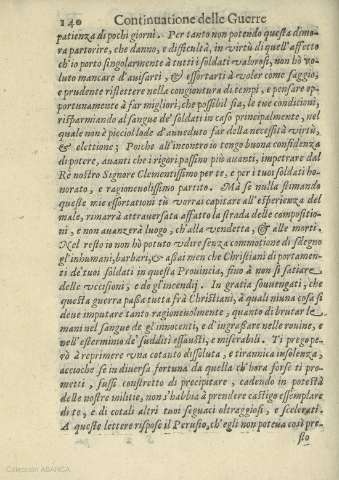 140 Continuatione delle Guerre
patienza di pochi giorni. Per tanto non potendo questa dimo-
ra partorire, che danno, e difficultà, in virtù di quell'affetto
ch'io porto singolarmente à tutti i soldati valorosi, non hò vo-
luto mancare d'auisarti, & essortarti à voler come saggio,
e prudente riflettere nella congiontura di tempi, e pensare op-
portunamente à far migliori, che possibil sia, le tue conditioni,
risparmiando al sangue de' soldati in caso principalmente, nel
quale non è picciol lode d'aueduto far della necessità virtù,
& elettione; Poiche all'incontro io tengo buona confidenza
di potere, auanti che i rigori passino più auanti, impetrare dal
Rè nostro Signore Clementissimo per te, e per i tuoi soldati ho-
norato, e ragioneuolissimo partito. Mà se nulla stimando
queste mie essortationi tù vorrai capitare all'esperienza del
male, rimarrà attrauersata affatto la strada delle compositio-
ni, e non auanzerà luogo, ch'alla vendetta, & alle morti.
Nel resto io non hò potuto vdire senza commotione di sdegno
gl'inhumani, barbari, & assai men che Christiani di portamen-
ti de' tuoi soldati in questa Prouincia, fino à non si satiare
delle vccisioni, e de gl'incendij. In gratia souuengati, che
questa guerra passa tutta frà Christiani, à quali niuna cosa si
deue imputare tanto ragioneuolmente, quanto di brutar le
mani nel sangue de gl'innocenti, e d'ingrassare nelle rouine, e
nell'esterminio de' sudditi essausti, e miserabili. Ti prego pe-
rò à reprimere vna cotanto dissoluta, e tirannica insolenza,
accioche se in diuersa fortuna da quella ch'hora forse ti pro-
metti, fussi constretto di precipitare, cadendo in potestà
delle nostre militie, non s'habbia à prendere castigo essemplare
di te, e di cotali altri tuoi seguaci oltraggiosi, e scelerati.
A queste lettere rispose il Perusio, ch'egli non poteua così pre-
sto
Colección ABANCA